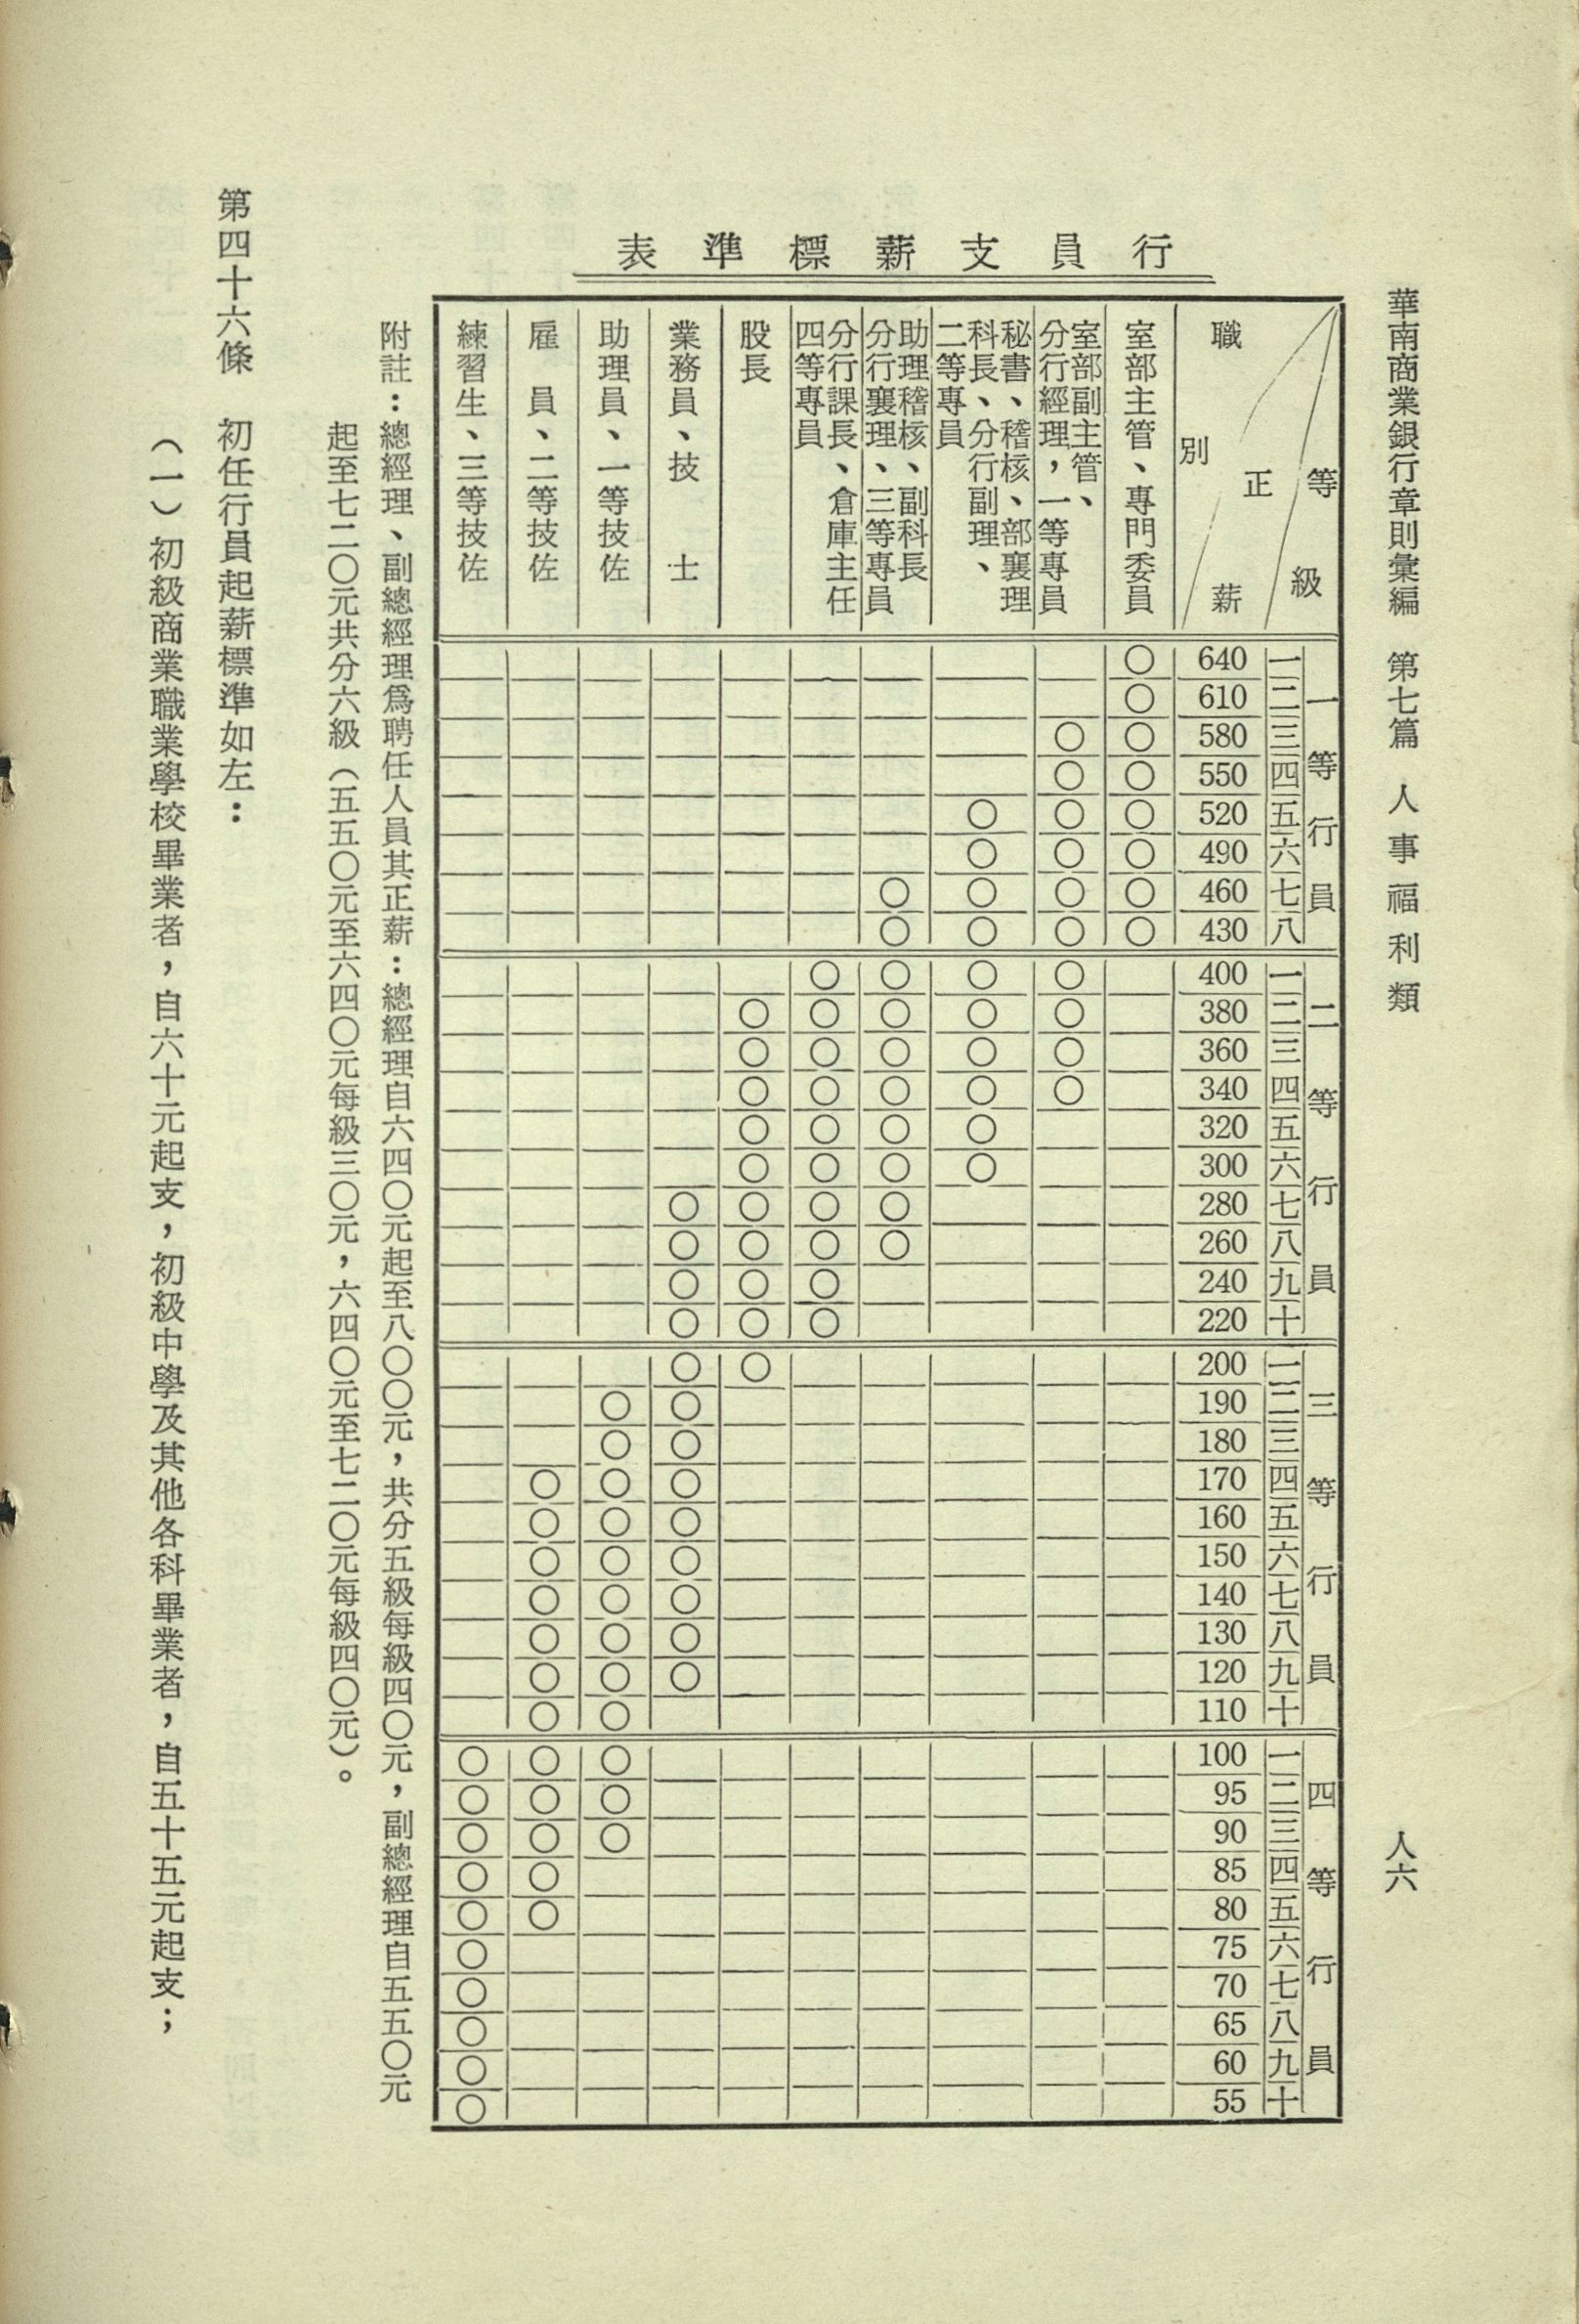 華南商業銀行章則彙編　第七篇　人事福利類
人六
行員支薪標準表
等級
正薪
職別
室部主管、專門委員
室部副主管、
分行經理，一等專員
秘書、稽核、部襄理
科長、分行副理、
二等專員
助理稽核、副科長
分行襄理、三等專員
分行課長、倉庫主任
四等專員
股長
業務員、技士
助理員、一等技佐
雇員、二等技佐
練習生、三等技佐
一等行員
一 640 〇
二 610 〇
三 580 〇 〇
四 550 〇 〇
五 520 〇 〇 〇
六 490 〇 〇 〇
七 460 〇 〇 〇 〇
八 430 〇 〇 〇 〇
二等行員
一 400 〇 〇 〇 〇
二 380 〇 〇 〇 〇 〇
三 360 〇 〇 〇 〇 〇
四 340 〇 〇 〇 〇 〇
五 320 〇 〇 〇 〇
六 300 〇 〇 〇 〇
七 280 〇 〇 〇 〇
八 260 〇 〇 〇 〇
九 240 〇 〇 〇
十 220 〇 〇 〇
三等行員
一 200 〇 〇
二 190 〇 〇
三 180 〇 〇
四 170 〇 〇 〇
五 160 〇 〇 〇
六 150 〇 〇 〇
七 140 〇 〇 〇
八 130 〇 〇 〇
九 120 〇 〇 〇
十 110 〇 〇
四等行員
一 100 〇 〇 〇
二 95 〇 〇 〇
三 90 〇 〇 〇
四 85 〇 〇
五 80 〇 〇
六 75 〇
七 70 〇
八 65 〇
九 60 〇
十 55 〇
附註：總經理、副總經理爲聘任人員其正薪：總經理自六四〇元起至八〇〇元，共分五級每級四〇元，副總經理自五五〇元
起至七二〇元共分六級（五五〇元至六四〇元每級三〇元，六四〇元至七二〇元每級四〇元）。
第四十六條　初任行員起薪標準如左：
（一）初級商業職業學校畢業者，自六十元起支，初級中學及其他各科畢業者，自五十五元起支；